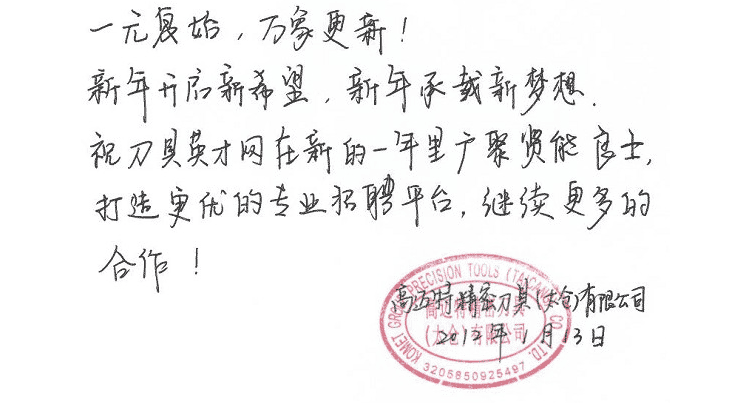 一元复始，万象更新！
新年开启新希望，新年承载新梦想.
祝刀具英才网在新的一年里广聚贤能良士,
打造更优的专业招聘平台，继续更多的
合作！
高迈特精密刀具(太仓)有限公司
2012年1月13日
KOMET GROUP PRECISION TOOLS (TAICANG) CO., LTD.
高迈特精密刀具
(太仓)有限公司
3205850925497